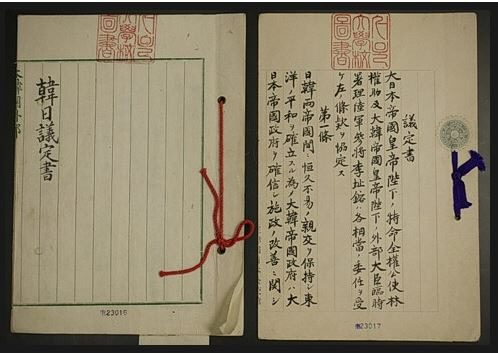 大學校
圖書
韓日議定書
奎23016
大學校
圖書
議定書
大日本帝國皇帝陛下ノ特命全權公使林
權助及大韓帝國皇帝陛下ノ外部大臣臨時
署理陸軍參將李址鎔ハ各相當ノ委任ヲ受
ケ左ノ條款ヲ協定ス
第一條
日韓兩帝國間ニ恒久不易ノ親交ヲ保持シ東
洋ノ平和ヲ確立スル為メ大韓帝國政府ハ大
日本帝國政府ヲ確信シ施政ノ改善ニ關シ
奎23017